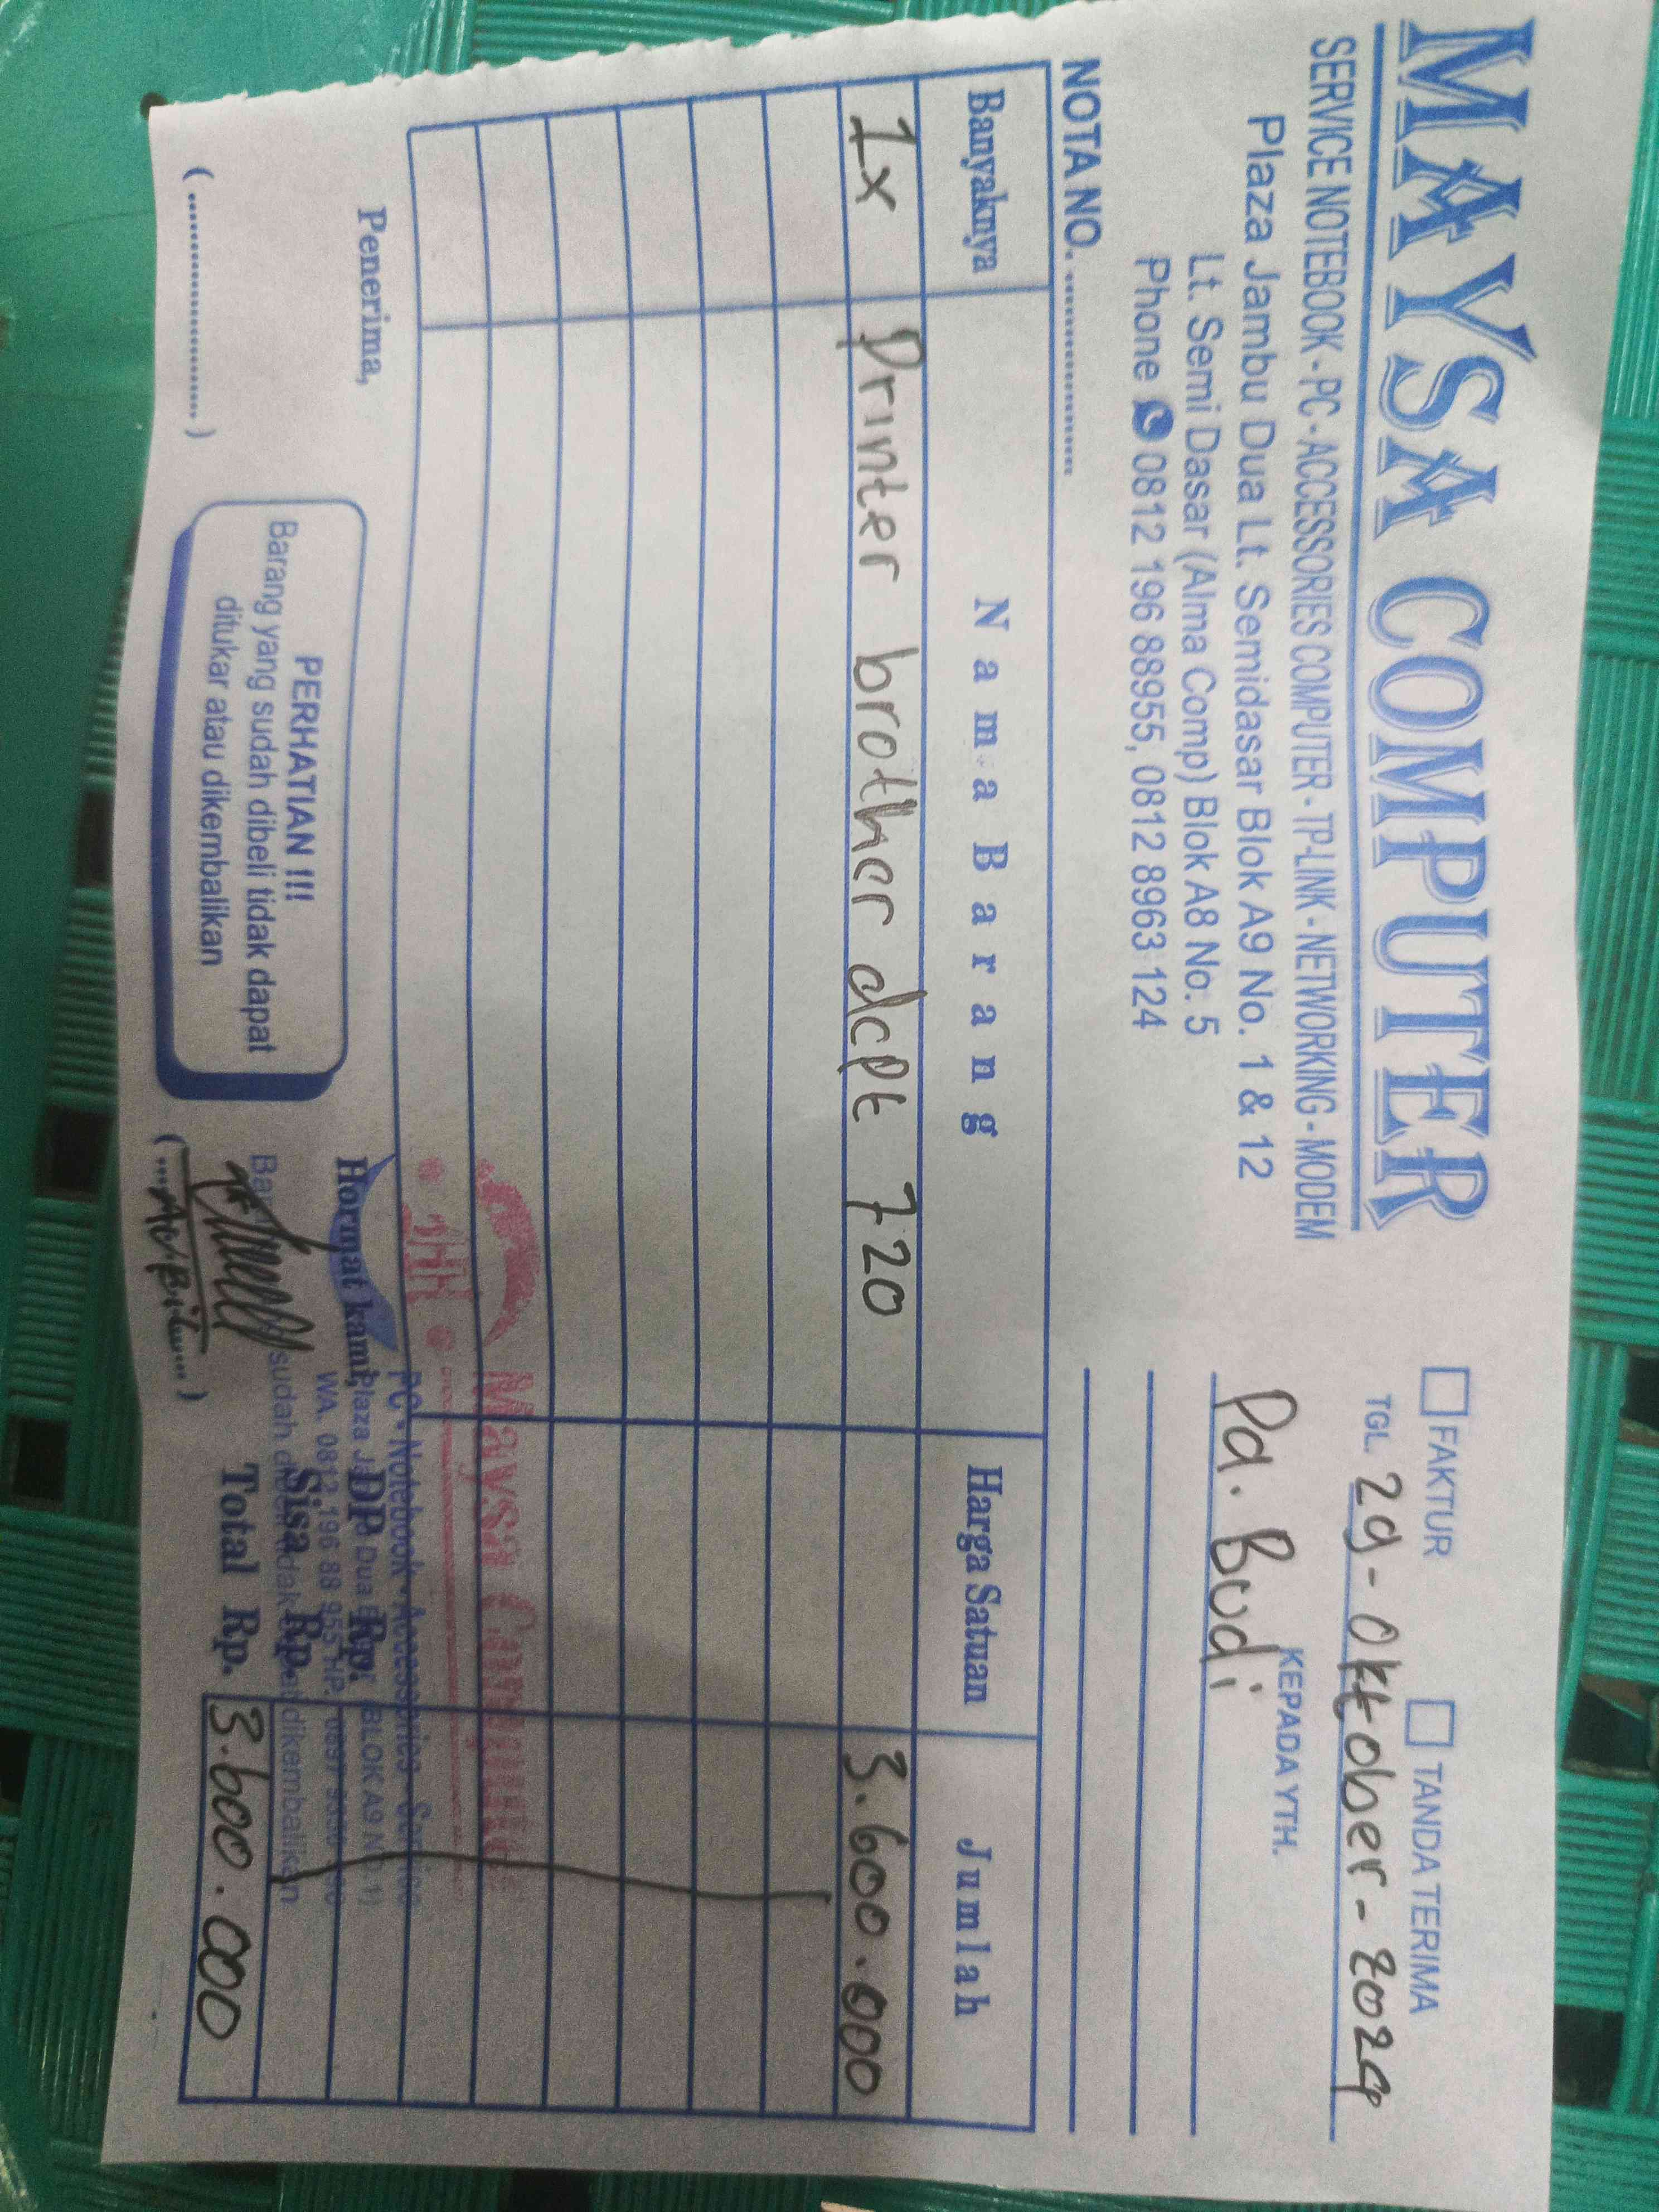 MAYSA COMPUTER
SERVICE NOTEBOOK - PC - ACCESSORIES COMPUTER - TP-LINK - NETWORKING - MODEM
Plaza Jambu Dua Lt. Semidasar Blok A9 No. 1 & 12
Lt. Semi Dasar (Alma Comp) Blok A8 No. 5
Phone 0812 196 88955, 0812 8963 124
FAKTUR TANDA TERIMA
TGL. 29 - Oktober - 2024
KEPADA YTH.
Pa. Budi
NOTA NO. ....................
Banyaknya Nama Barang Harga Satuan Jumlah
1x Printer brother dcpt 720 3.600.000
Maysa Computer
PC - Notebook - Accessories - Service
Plaza Dua BLOK A9 No.1)
WA. 0812 196 88 955 HP.
sudah dikembalikan
Penerima,
(......................)
PERHATIAN !!!
Barang yang sudah dibeli tidak dapat
ditukar atau dikembalikan
Hormat kami,
DP Rp.
Sisa Rp.
Total Rp. 3.600.000